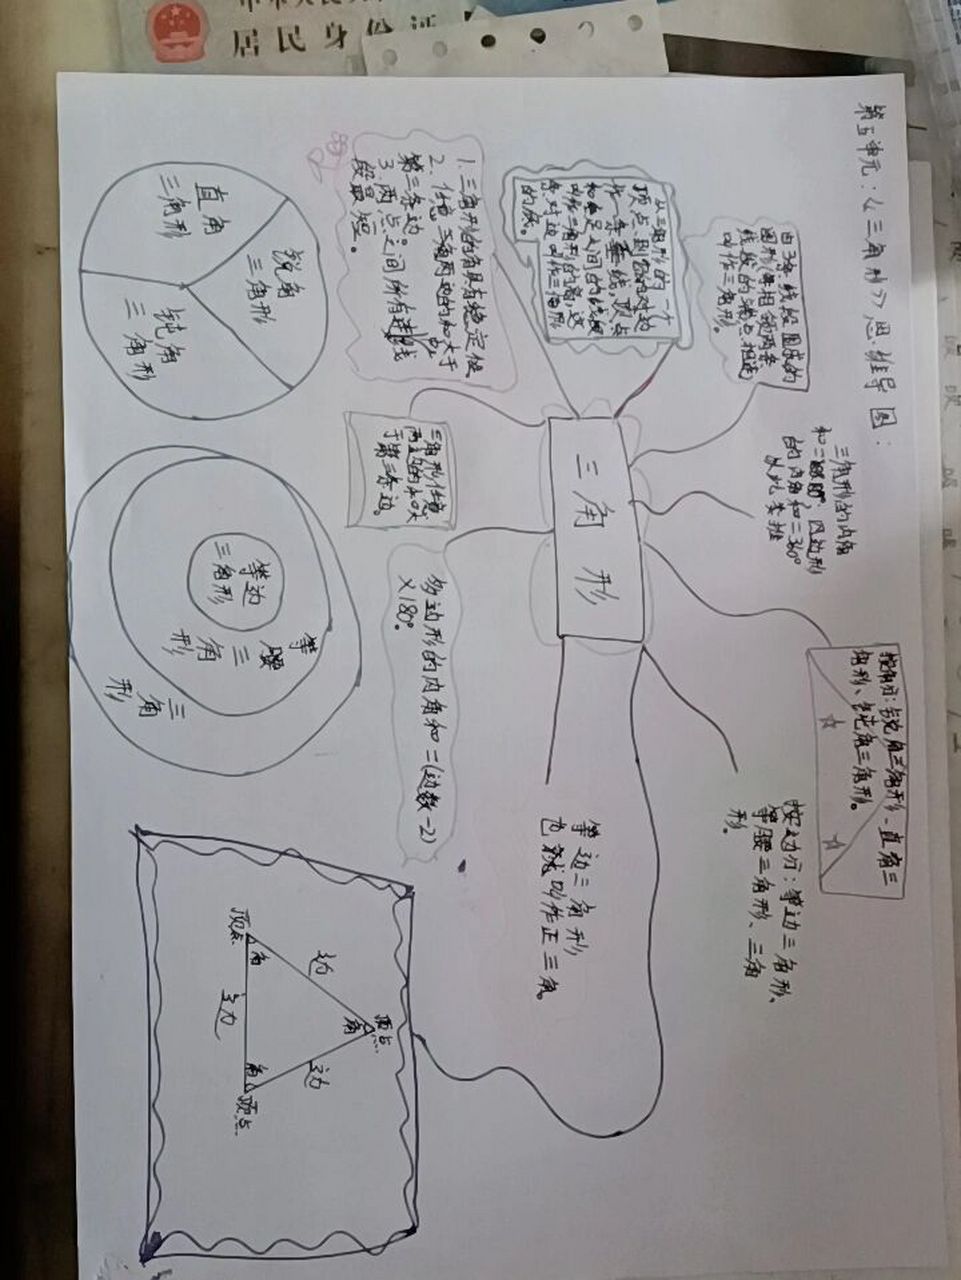 居民身份证
第五单元：《三角形》思维导图：
由3条线段围成的
图形(每相邻两条
线段的端点相连)
叫作三角形。
从三角形的一个
顶点到它的对边
作一条垂线，顶点
和垂足之间的线段
叫作三角形的高，这
条对边叫作三角形
的底。
1.三角形的角具有稳定性
2.任意三角两边的和大于
第三条边。
3.两点之间所有连线
段最短。
三角形的内角
的内角和=360°
以此类推
三角形任意
两边的和大
于第三条边。
三角形
按角分：锐角三角形、直角三
角形、钝角三角形。
按边分：等边三角形、
等腰三角形、三角
形。
等边三角形
也就叫作正三角。
多边形的内角和=(边数-2)
×180°。
直角
三角形
锐角
三角形
钝角
三角形
等边
三角形
等腰
三角形
三角形
顶点
角
边
顶点
角
边
边
角
顶点